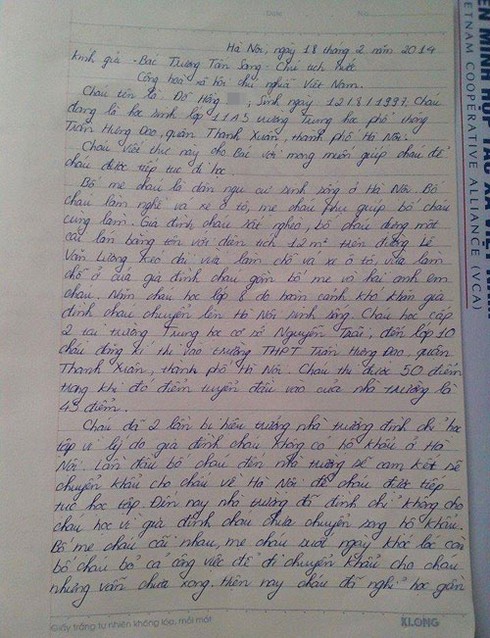 Date No.
Hà Nội, ngày 18 tháng 2 năm 2014
Kính gửi - Bác Trương Tấn Sang - Chủ tịch nước
Cộng hoà xã hội chủ nghĩa Việt Nam.
Cháu tên là Đỗ Hồng , Sinh ngày 12/8/1997. Cháu
đang là học sinh lớp 11A5 trường Trung học phổ thông
Trần Hưng Đạo, quận Thanh Xuân, thành phố Hà Nội.
Cháu viết thư này cho Bác với mong muốn giúp cháu để
cháu được tiếp tục đi học.
Bố mẹ cháu là dân ngụ cư sinh sống ở Hà Nội. Bố
cháu làm nghề vá xe ô tô, mẹ cháu phụ giúp bố cháu
cùng làm. Gia đình cháu rất nghèo, bố cháu dựng một
cái lán bằng tôn với diện tích 12m² trên đường Lê
Văn Lương kéo dài vừa làm chỗ vá xe ô tô, vừa làm
chỗ ở của gia đình cháu gồm bố mẹ và hai anh em
cháu. Năm cháu học lớp 8 do hoàn cảnh khó khăn gia
đình cháu chuyển lên Hà Nội sinh sống. Cháu học cấp
2 tại trường Trung học cơ sở Nguyễn Trãi, đến lớp 10
cháu đăng kí thi vào trường THPT Trần Hưng Đạo, quận
Thanh Xuân, thành phố Hà Nội. Cháu thi được 50 điểm
trong khi đó điểm tuyển đầu vào của nhà trường là
43 điểm.
Cháu đã 2 lần bị hiệu trưởng nhà trường đình chỉ học
tập vì lý do gia đình cháu không có hộ khẩu ở Hà
Nội. Lần đầu bố cháu đến nhà trường để cam kết sẽ
chuyển khẩu cho cháu về Hà Nội để cháu được tiếp
tục học tập. Đến nay nhà trường đã đình chỉ không cho
cháu học vì gia đình cháu chưa chuyển xong hộ khẩu.
Bố mẹ cháu cãi nhau, mẹ cháu suốt ngày khóc lóc còn
bố cháu bỏ cả công việc để đi chuyển khẩu cho cháu
nhưng vẫn chưa xong. Hiện nay cháu đã nghỉ học gần
Giấy trắng tự nhiên không lóp, mỏi mắt
KLONG
ÊN MINH HỢP TÁC XÃ VIỆT NAM
VIETNAM COOPERATIVE ALLIANCE (VCA)